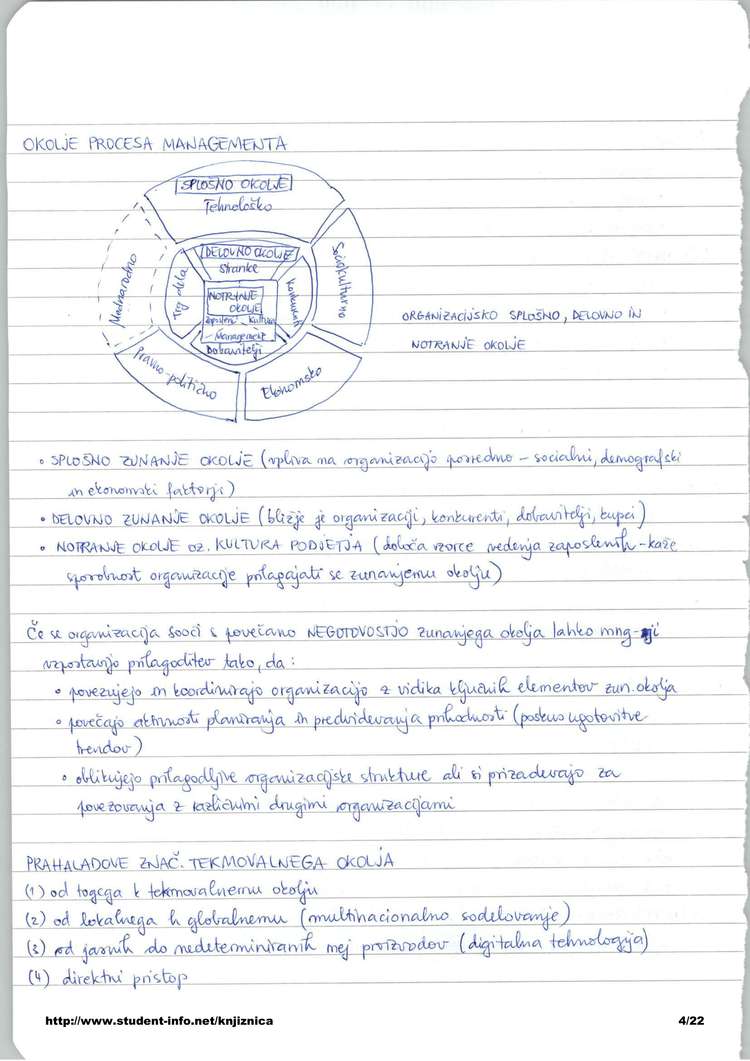 OKOLJE PROCESA MANAGEMENTA
SPLOŠNO OKOLJE
Tehnološko
Mednarodno
Trg dela
DELOVNO OKOLJE
stranke
Konkurenti
Sociokulturno
NOTRANJE
OKOLJE
zaposleni Kultura
- Management
Dobavitelji
Pravno-politično
Ekonomsko
ORGANIZACIJSKO SPLOŠNO, DELOVNO IN
NOTRANJE OKOLJE
• SPLOŠNO ZUNANJE OKOLJE (vpliva na organizacijo posredno - socialni, demografski
in ekonomski faktorji)
• DELOVNO ZUNANJE OKOLJE (bližje je organizaciji, konkurenti, dobavitelji, kupci)
• NOTRANJE OKOLJE OZ. KULTURA PODJETJA (določa vzorce vedenja zaposlenih - kaže
sposobnost organizacije prilagajati se zunanjemu okolju)
Če se organizacija sooči s povečano NEGOTOVOSTJO zunanjega okolja lahko mng-ji
vzpostavijo prilagoditev tako, da:
• povezujejo in koordinirajo organizacijo z vidika ključnih elementov zun. okolja
• povečajo aktivnosti planiranja in predvidevanja prihodnosti (poskus ugotovitve
trendov)
• oblikujejo prilagodljive organizacijske strukture ali si prizadevajo za
povezovanja z različnimi drugimi organizacijami
PRAHALADOVE ZNAČ. TEKMOVALNEGA OKOLJA
(1) od togega k tekmovalnemu okolju
(2) od lokalnega h globalnemu (multinacionalno sodelovanje)
(3) od jasnih do nedeterminiranih mej proizvodov (digitalna tehnologija)
(4) direktni pristop
http://www.student-info.net/knjiznica
4/22